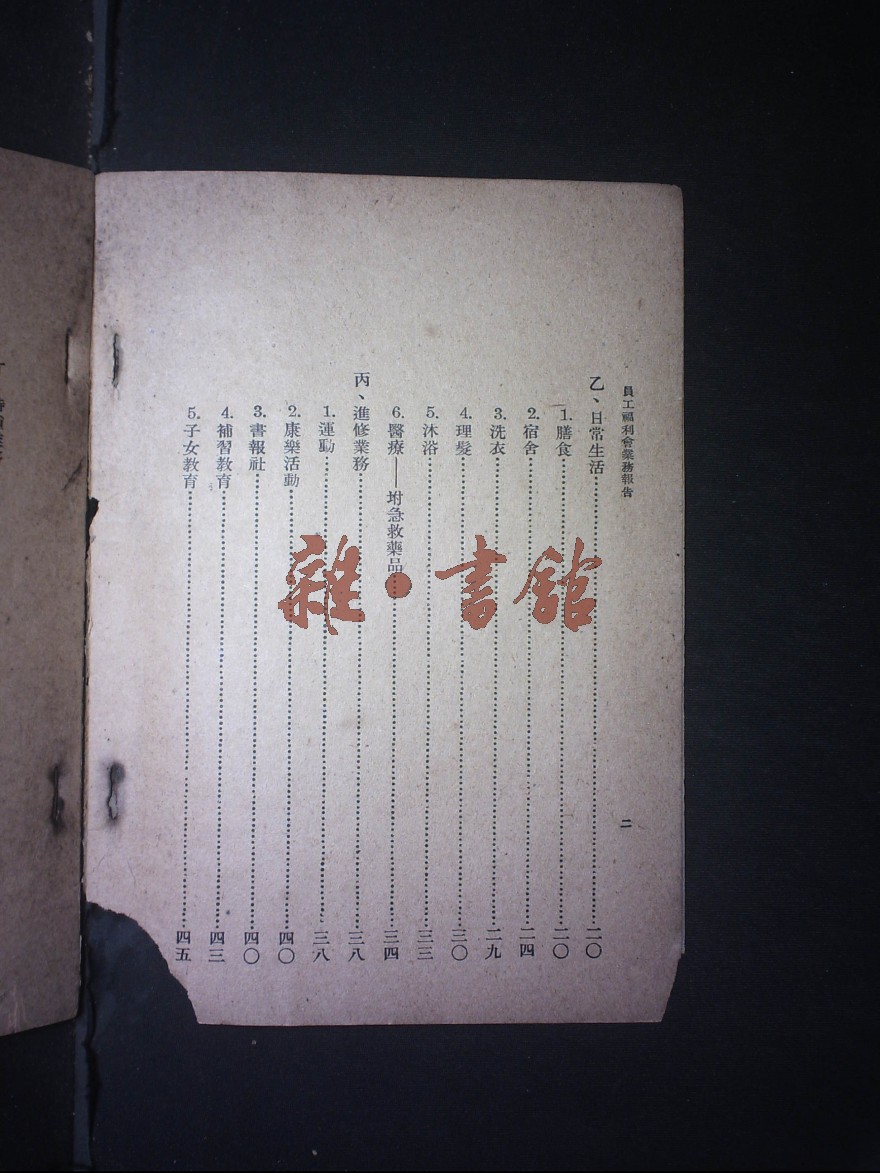 員工福利會業務報告
二
乙、日常生活……二〇
1.膳食……二〇
2.宿舍……二四
3.洗衣……二九
4.理髮……三〇
5.沐浴……三三
6.醫療——坿急救藥品……三四
丙、進修業務……三八
1.運動……三八
2.康樂活動……四〇
3.書報社……四〇
4.補習教育……四三
5.子女教育……四五
雜·書館